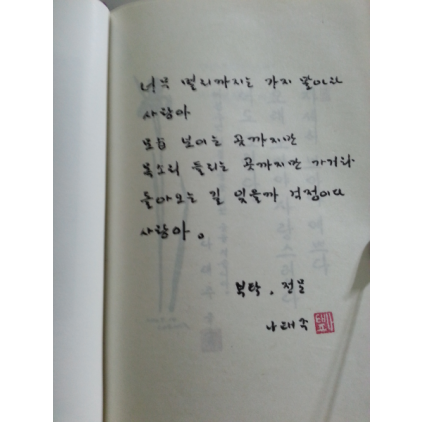 너무 멀리까지는 가지 말아라
사랑아
모습 보이는 곳까지만
목소리 들리는 곳까지만 가거라
돌아오는 길 잊을까 걱정이다
사랑아.
부탁, 전문
나태주